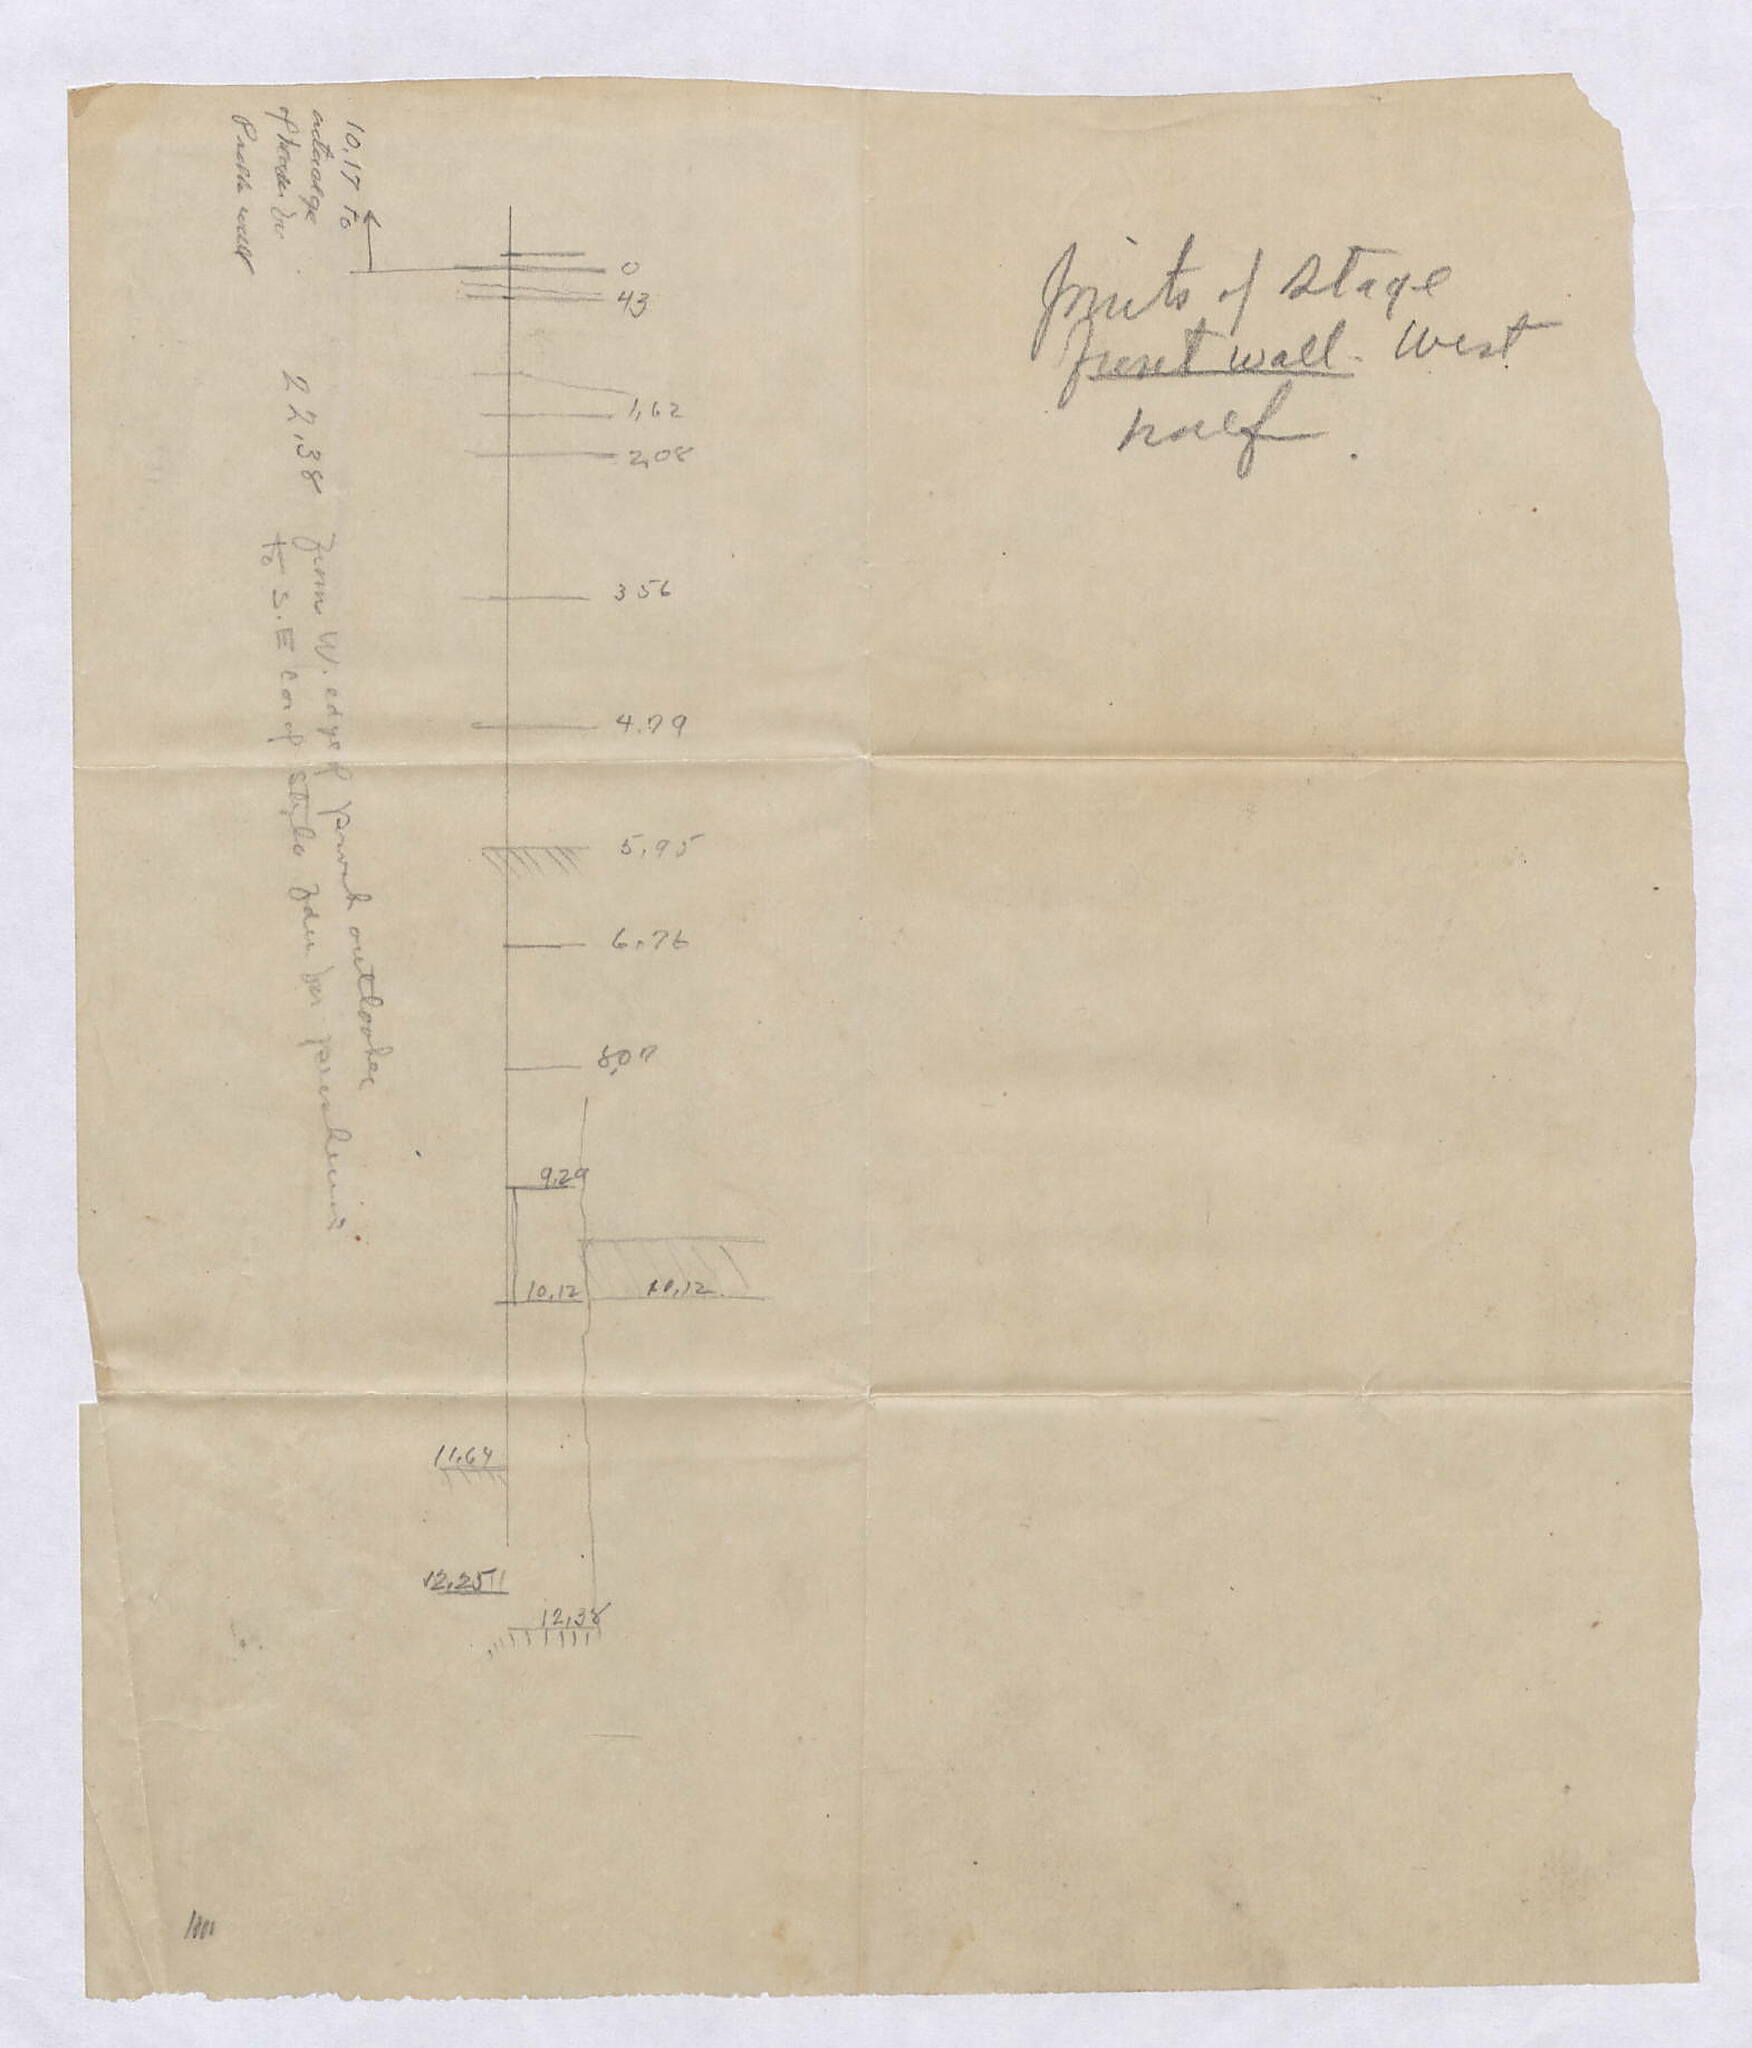 Joints of Stage
front wall. West
half.
10,17 to
outer edge
of header in
Parth wall
0
43
1,62
2,08
3 56
4.79
5,95
6,76
8,07
9,29
10,12
10,12
11,64
12,25
12,38
22,38 from W. edge of
to S.E Cor of stylo